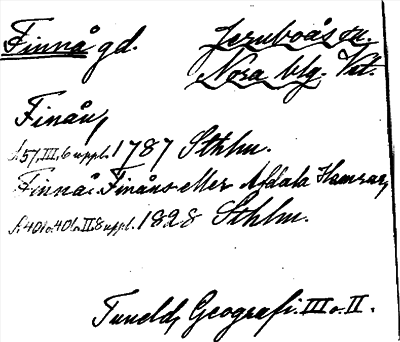 Finnå gd. Jernboås sn.
Nora blg. Vstm.
Finån,
s. 57, III, 6 uppl. 1787 Sthlm.
Finnå. Finåns eller Afdala Hamrar,
s. 40 o. 401. II. 8 uppl. 1828 Sthlm.
Tuneld, Geografi. III o. II.